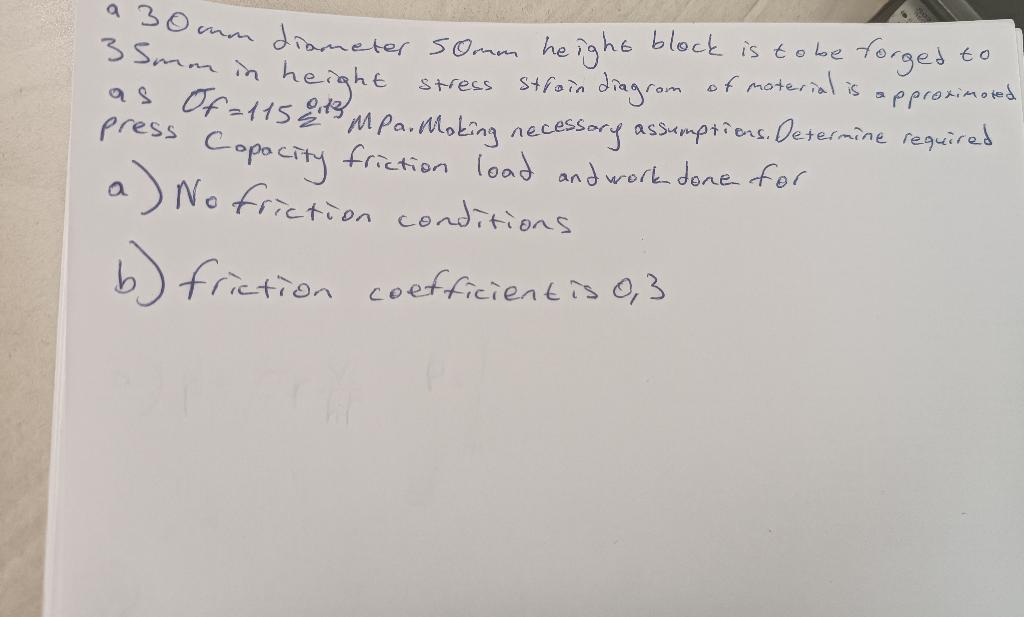 a 30mm diameter 50mm height block is to be forged to
35mm in height stress strain diagram of material is approximated
as σf=115 ε^0,13 MPa. Making necessary assumptions. Determine required
press Capacity friction load and work done for
a) No friction conditions
b) friction coefficient is 0,3